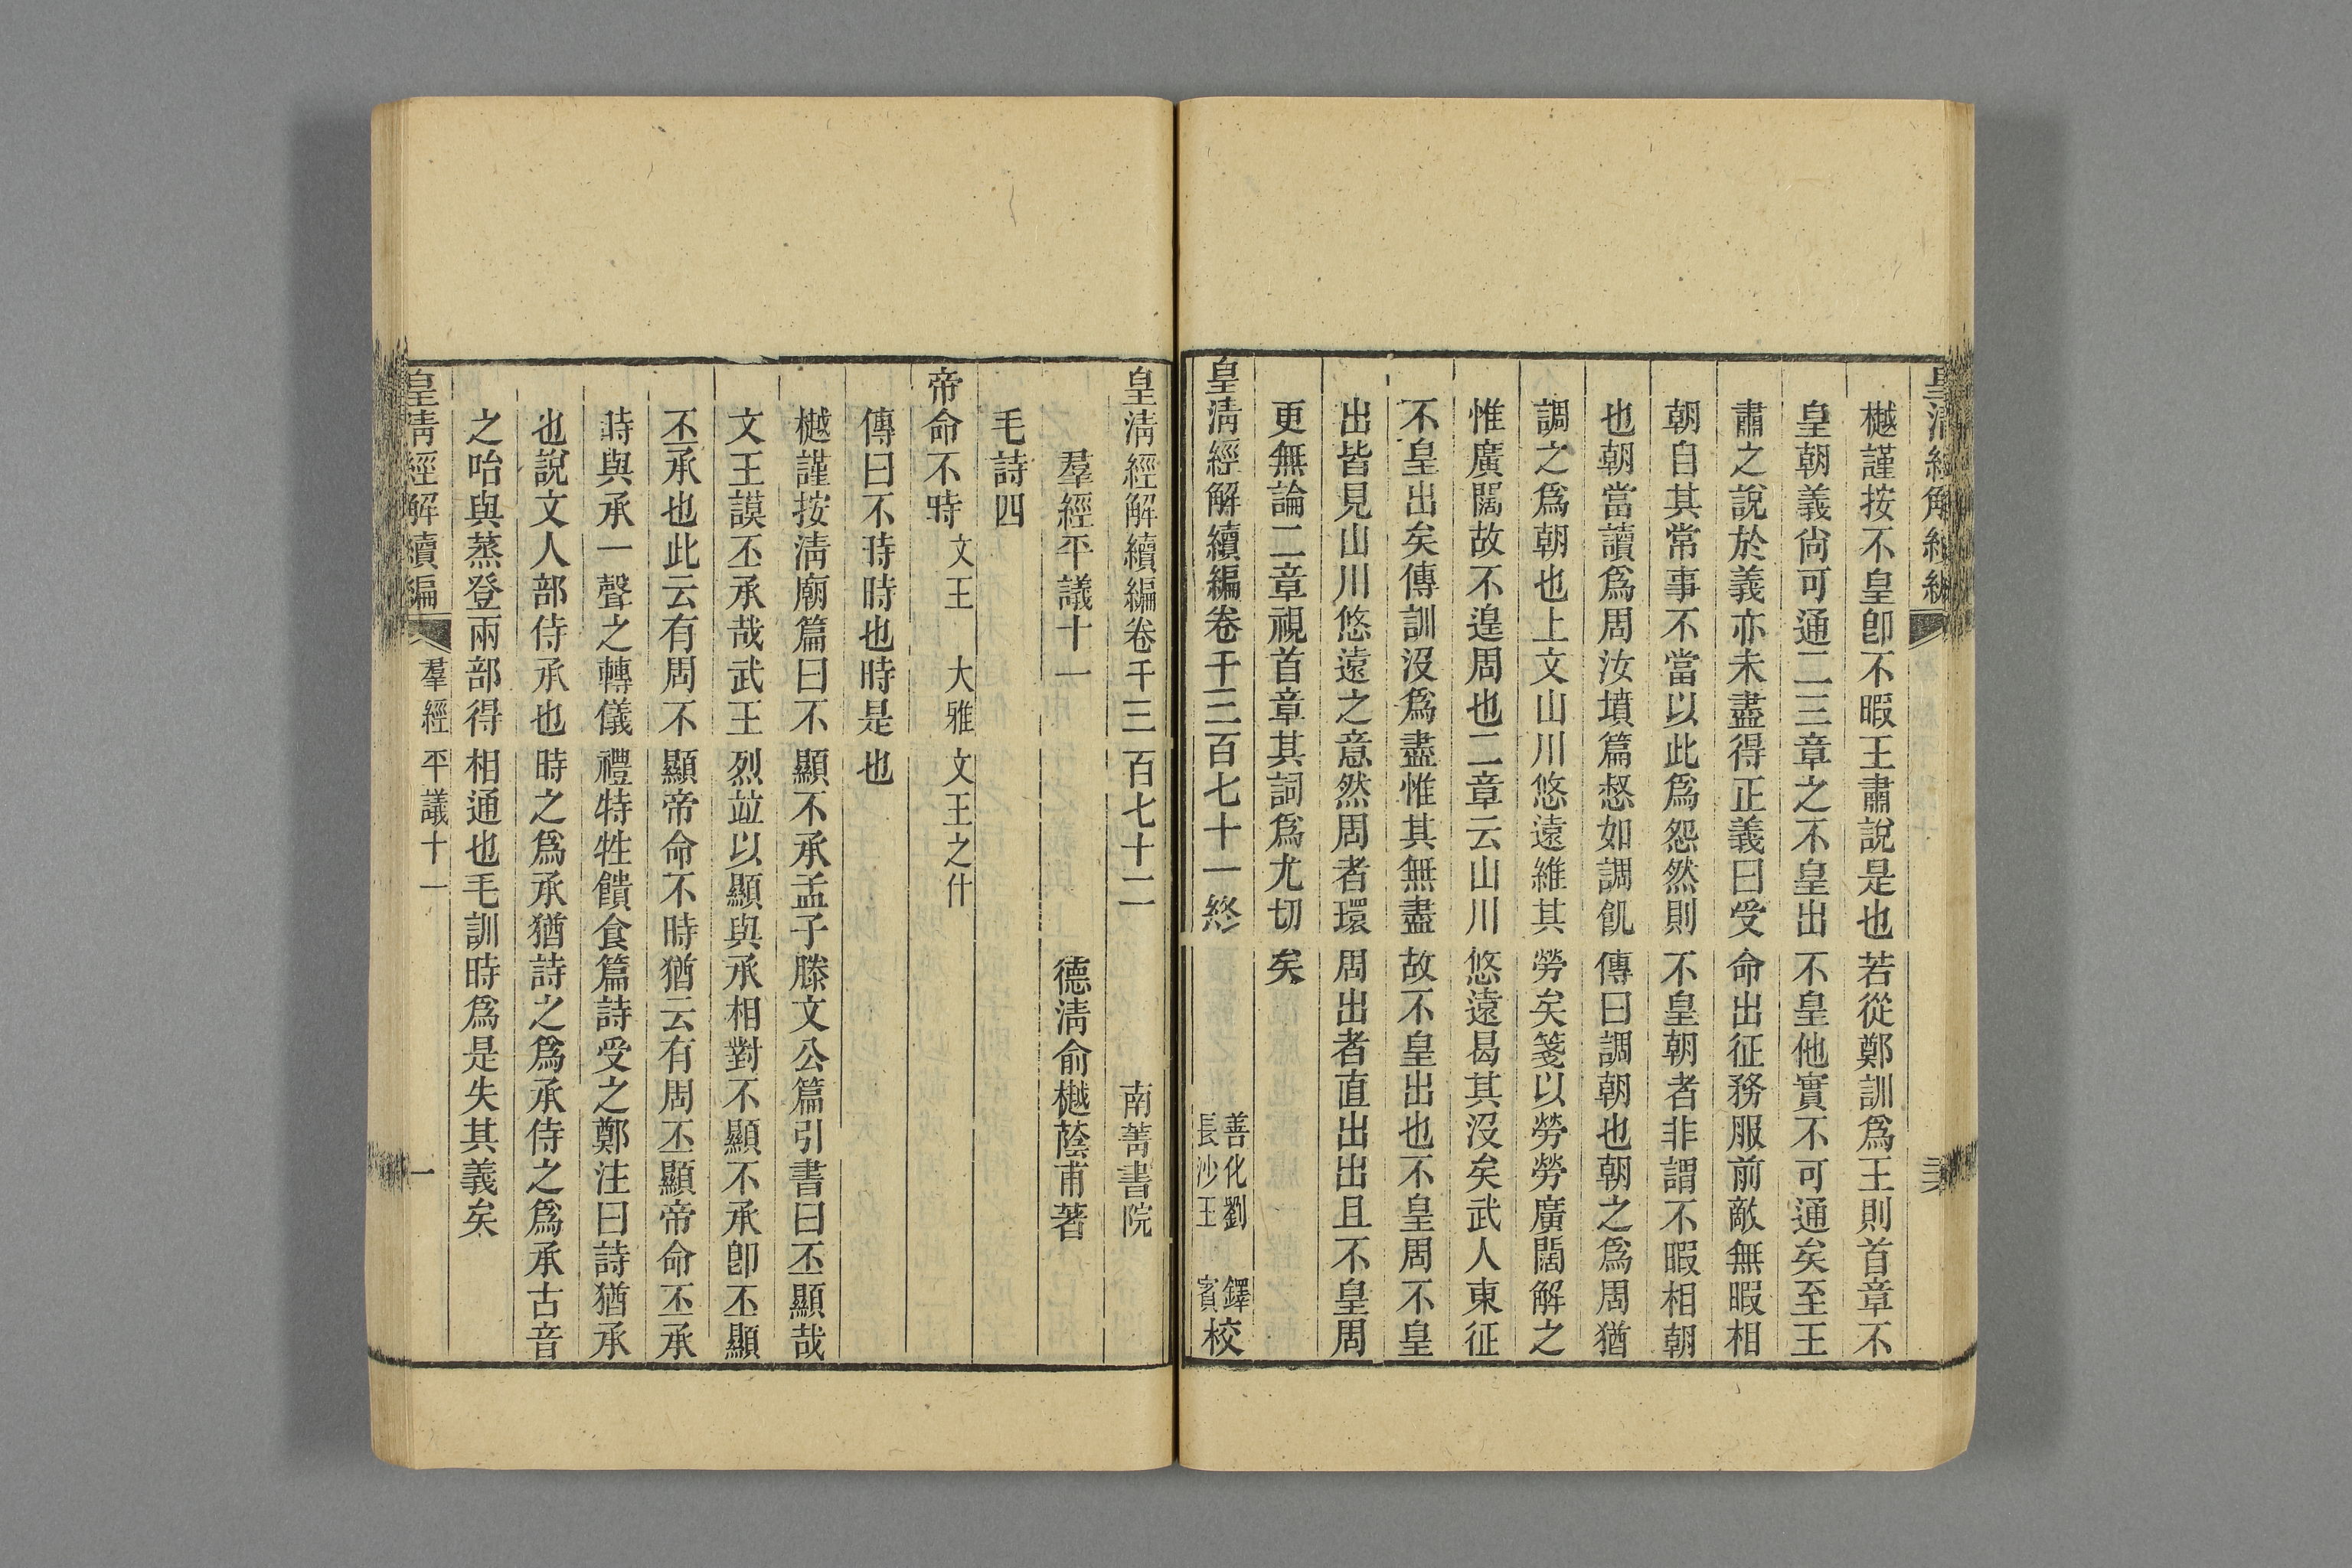 皇清經解續編
樾謹按不皇卽不暇王肅說是也若從鄭訓爲王則首章不
皇朝義尙可通二三章之不皇出不皇他實不可通矣至王
肅之說於義亦未盡得正義曰受命出征務服前敵無暇相
朝自其常事不當以此爲怨然則不皇朝者非謂不暇相朝
也朝當讀爲周汝墳篇惄如調飢傳曰調朝也朝之爲周猶
調之爲朝也上文山川悠遠維其勞矣箋以勞勞廣闊解之
惟廣闊故不遑周也二章云山川悠遠曷其沒矣武人東征
不皇出矣傳訓沒爲盡惟其無盡故不皇出也不皇周不皇
出皆見山川悠遠之意然周者環周出者直出出且不皇周
更無論二章視首章其詞爲尤切矣
皇清經解續編卷千三百七十一終
善化劉鐸
長沙王賓校
皇清經解續編卷千三百七十二
南菁書院
羣經平議十一
德清俞樾蔭甫著
毛詩四
帝命不時 文王 大雅 文王之什
傳曰不時時也時是也
樾謹按清廟篇曰不顯不承孟子滕文公篇引書曰丕顯哉
文王謨丕承哉武王烈竝以顯與承相對不顯不承卽丕顯
丕承也此云有周不顯帝命不時猶云有周丕顯帝命丕承
時與承一聲之轉儀禮特牲饋食篇詩受之鄭注曰詩猶承
也說文人部侍承也時之爲承猶詩之爲承侍之爲承古音
之咍與蒸登兩部得相通也毛訓時爲是失其義矣
皇清經解續編 羣經平議十一 一